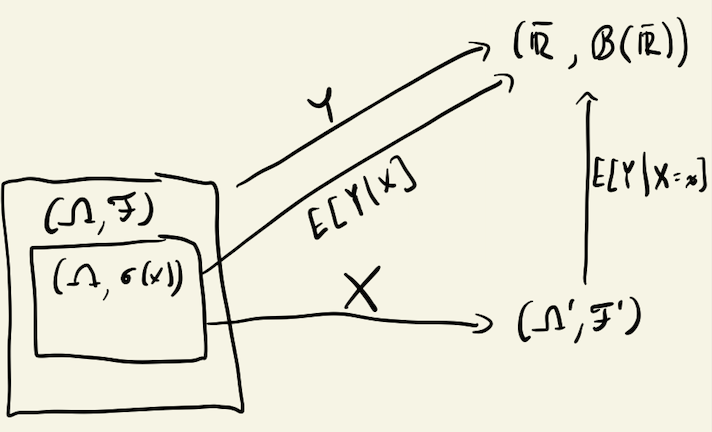 (ℝ̄, ℬ(ℝ̄))
Y
E[Y|X=x]
E[Y|X]
(Ω, ℱ)
(Ω, σ(X))
X
(Ω', ℱ')